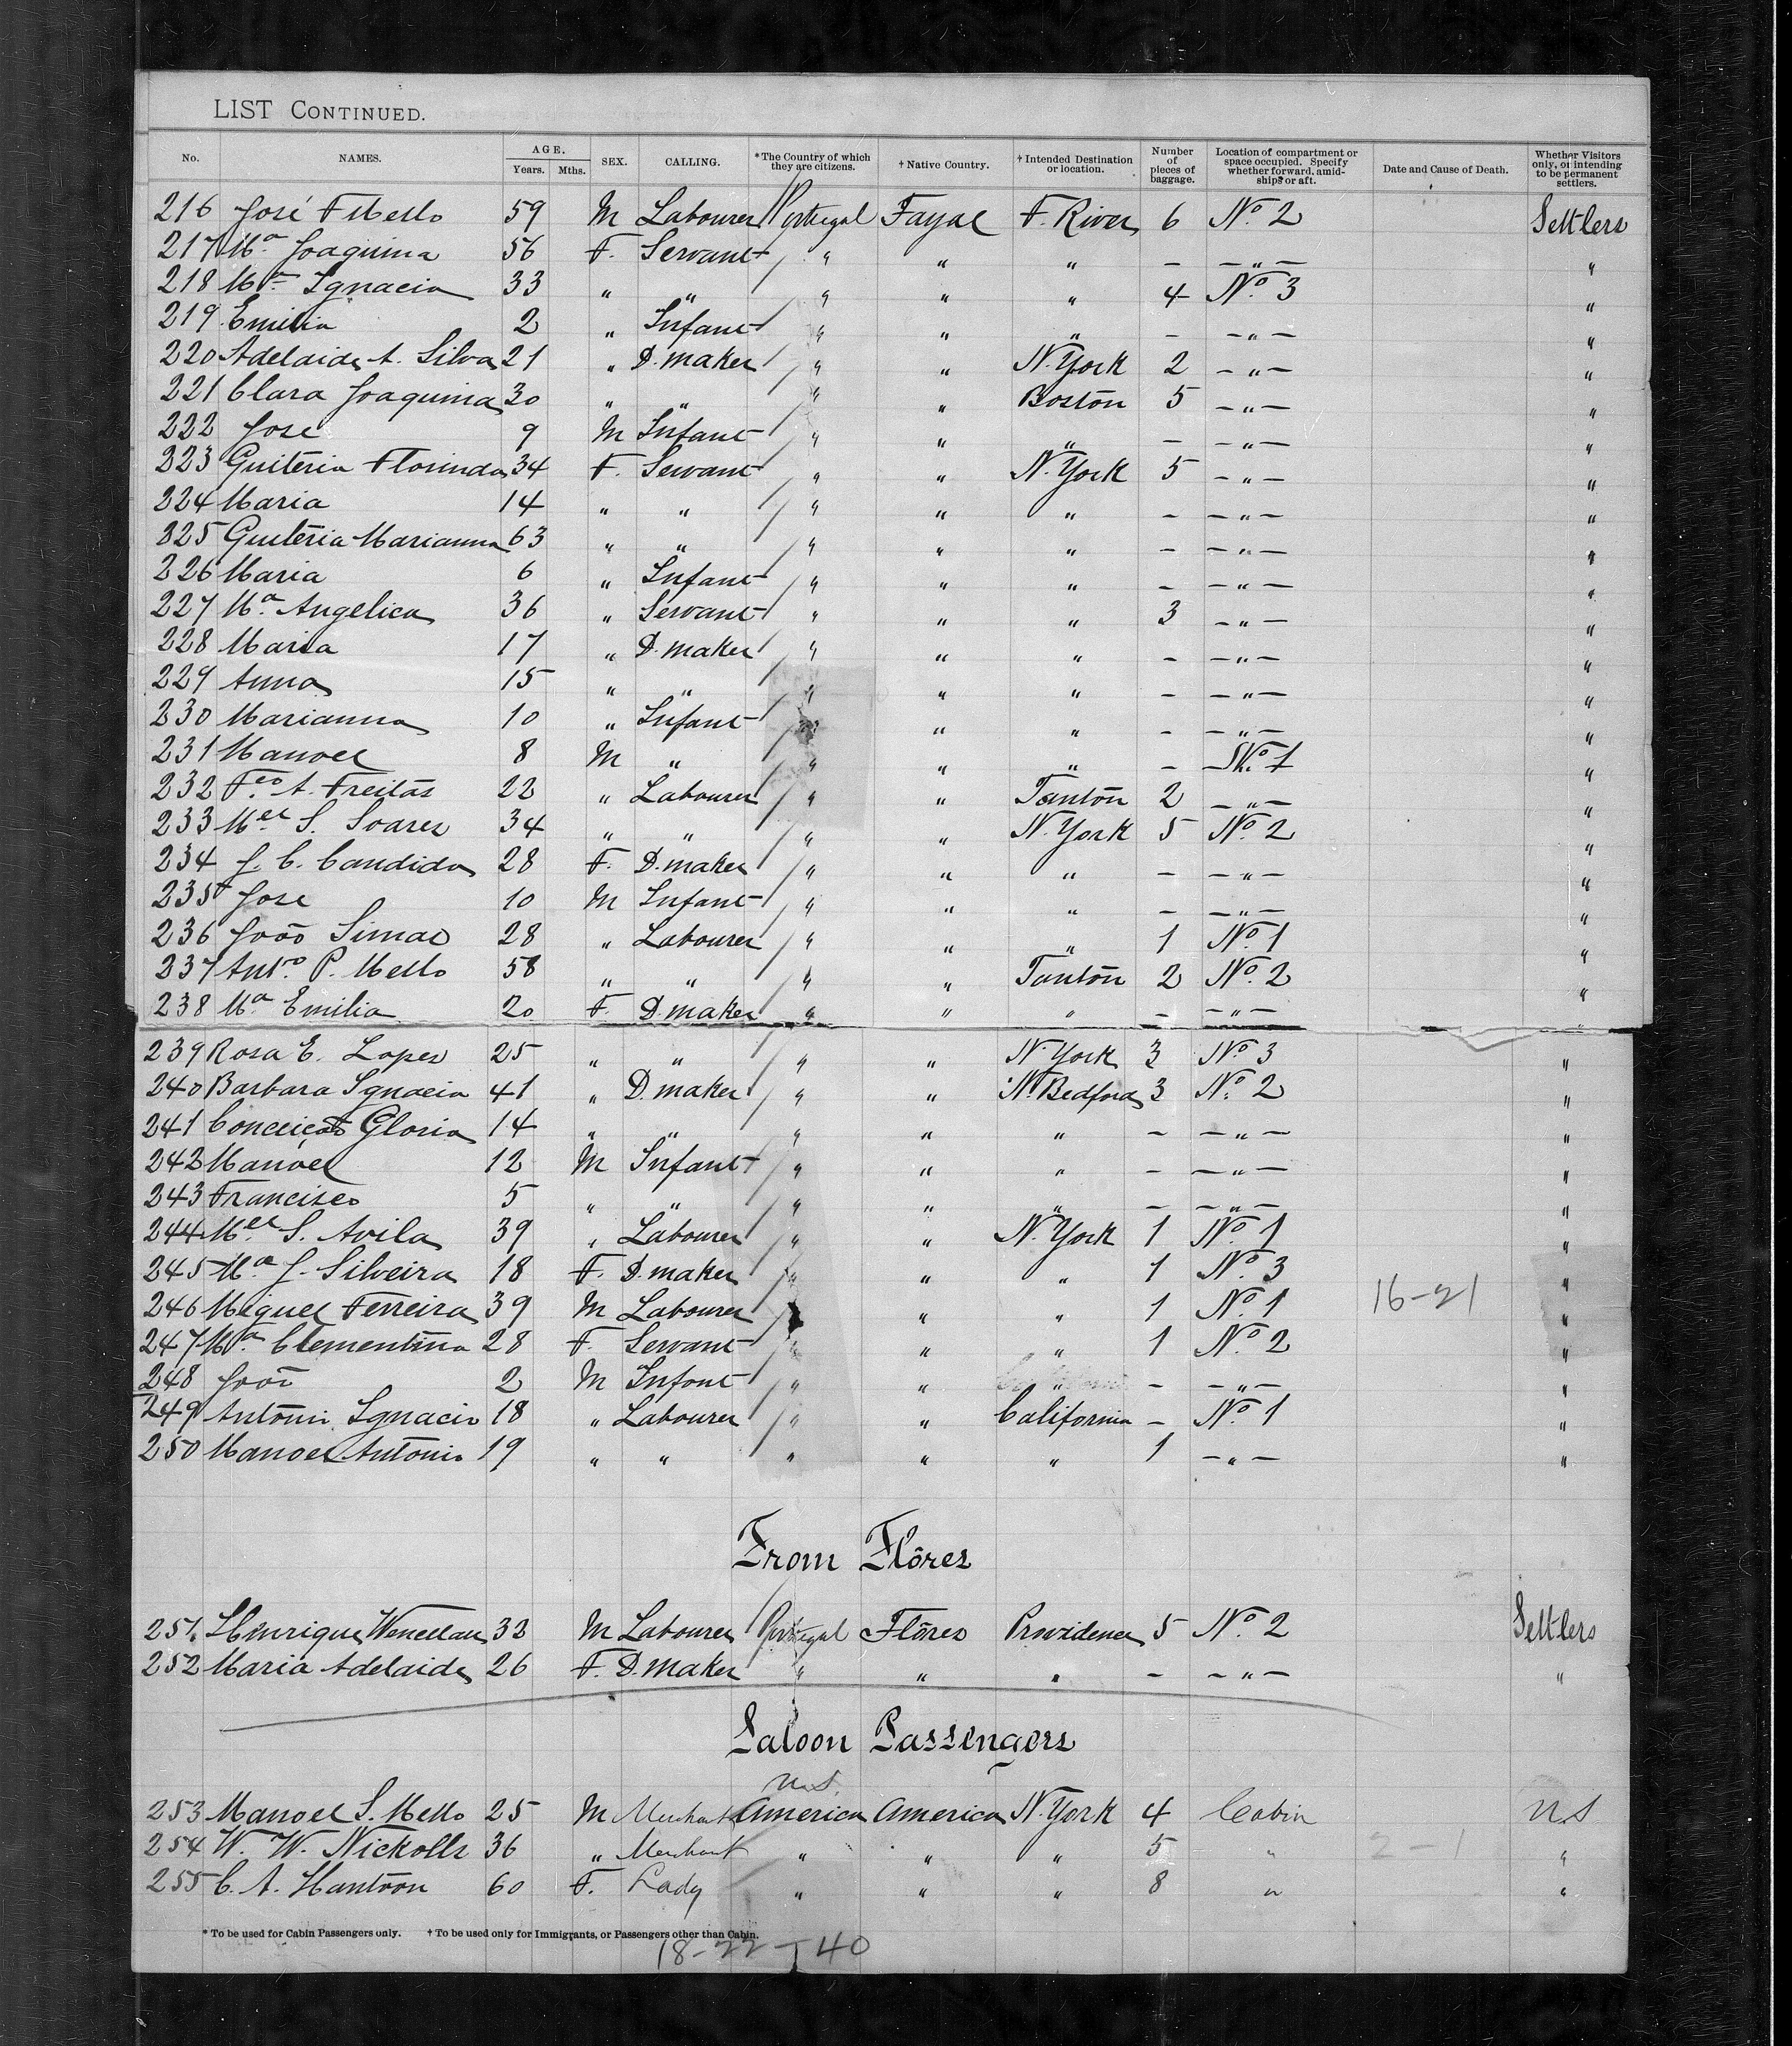 LIST CONTINUED.
No. NAMES. AGE. Years. Mths. SEX. CALLING. *The Country of which they are citizens. †Native Country. †Intended Destination or location. Number of pieces of baggage. Location of compartment or space occupied. Specify whether forward, amidships or aft. Date and Cause of Death. Whether Visitors only, or intending to be permanent settlers.
216 José F Mello 59 M Labourer Portugal Fayal F. River 6 No. 2 Settlers
217 Ma. Joaquina 56 F. Servant " " " — — " — "
218 Ma. Ignacia 33 " " " " " 4 No. 3 "
219 Emilia 2 " Infant " " " — — " — "
220 Adelaide A. Silva 21 " D. maker " " N. York 2 — " — "
221 Clara Joaquina 30 " " " " Boston 5 — " — "
222 Jose 9 M Infant " " " — — " — "
223 Guiteria Florinda 34 F. Servant " " N. York 5 — " — "
224 Maria 14 " " " " " — — " — "
225 Guiteria Marianna 63 " " " " " — — " — "
226 Maria 6 " Infant " " " — — " — "
227 Ma. Angelica 36 " Servant " " " 3 — " — "
228 Maria 17 " D. maker " " " — — " — "
229 Anna 15 " " " " " — — " — "
230 Marianna 10 " Infant " " " — — " — "
231 Manoel 8 M " " " " — No. 1 "
232 Fco A. Freitas 22 " Labourer " " Tanton 2 — " — "
233 Mel S. Soares 34 " " " " N. York 5 No. 2 "
234 J. C. Candida 28 F. D. maker " " " — — " — "
235 Jose 10 M Infant " " " — — " — "
236 João Simas 28 " Labourer " " " 1 No. 1 "
237 Anto. P. Mello 58 " " " " Tanton 2 No. 2 "
238 Ma Emilia 20 F. D. maker " " " — — " — "
239 Rosa E. Lopes 25 " " " " N. York 3 No. 3 "
240 Barbara Ignacia 41 " D. maker " " N. Bedford 3 No. 2 "
241 Conceição Gloria 14 " " " " " — — " — "
242 Manoel 12 M Infant " " " — — " — "
243 Francisco 5 " " " " " — — " — "
244 Mel S. Avila 39 " Labourer " " N. York 1 No. 1 "
245 Ma J. Silveira 18 F. D. maker " " " 1 No. 3 "
246 Miguel Ferreira 39 M Labourer " " " 1 No. 1 16-21 "
247 Ma. Clementina 28 F. Servant " " " 1 No. 2 "
248 João 2 M Infant " " " — — " — "
249 Antonio Ignacio 18 " Labourer " " California — No. 1 "
250 Manoel Antonio 19 " " " " " 1 — " — "
From Flôres
251 Henrique Wencelau 32 M Labourer Portugal Flôres Providence 5 No. 2 Settlers
252 Maria Adelaide 26 F. D. maker " " " — — " — "
Saloon Passengers
U.S.
253 Manoel S. Mello 25 M Merchant America America N. York 4 Cabin U.S
254 W. W. Nickolls 36 " Merchant " " " 5 " 2-1 "
255 C. A. Hantoon 60 F. Lady " " " 8 " "
* To be used for Cabin Passengers only. † To be used only for Immigrants, or Passengers other than Cabin.
18-22-T 40